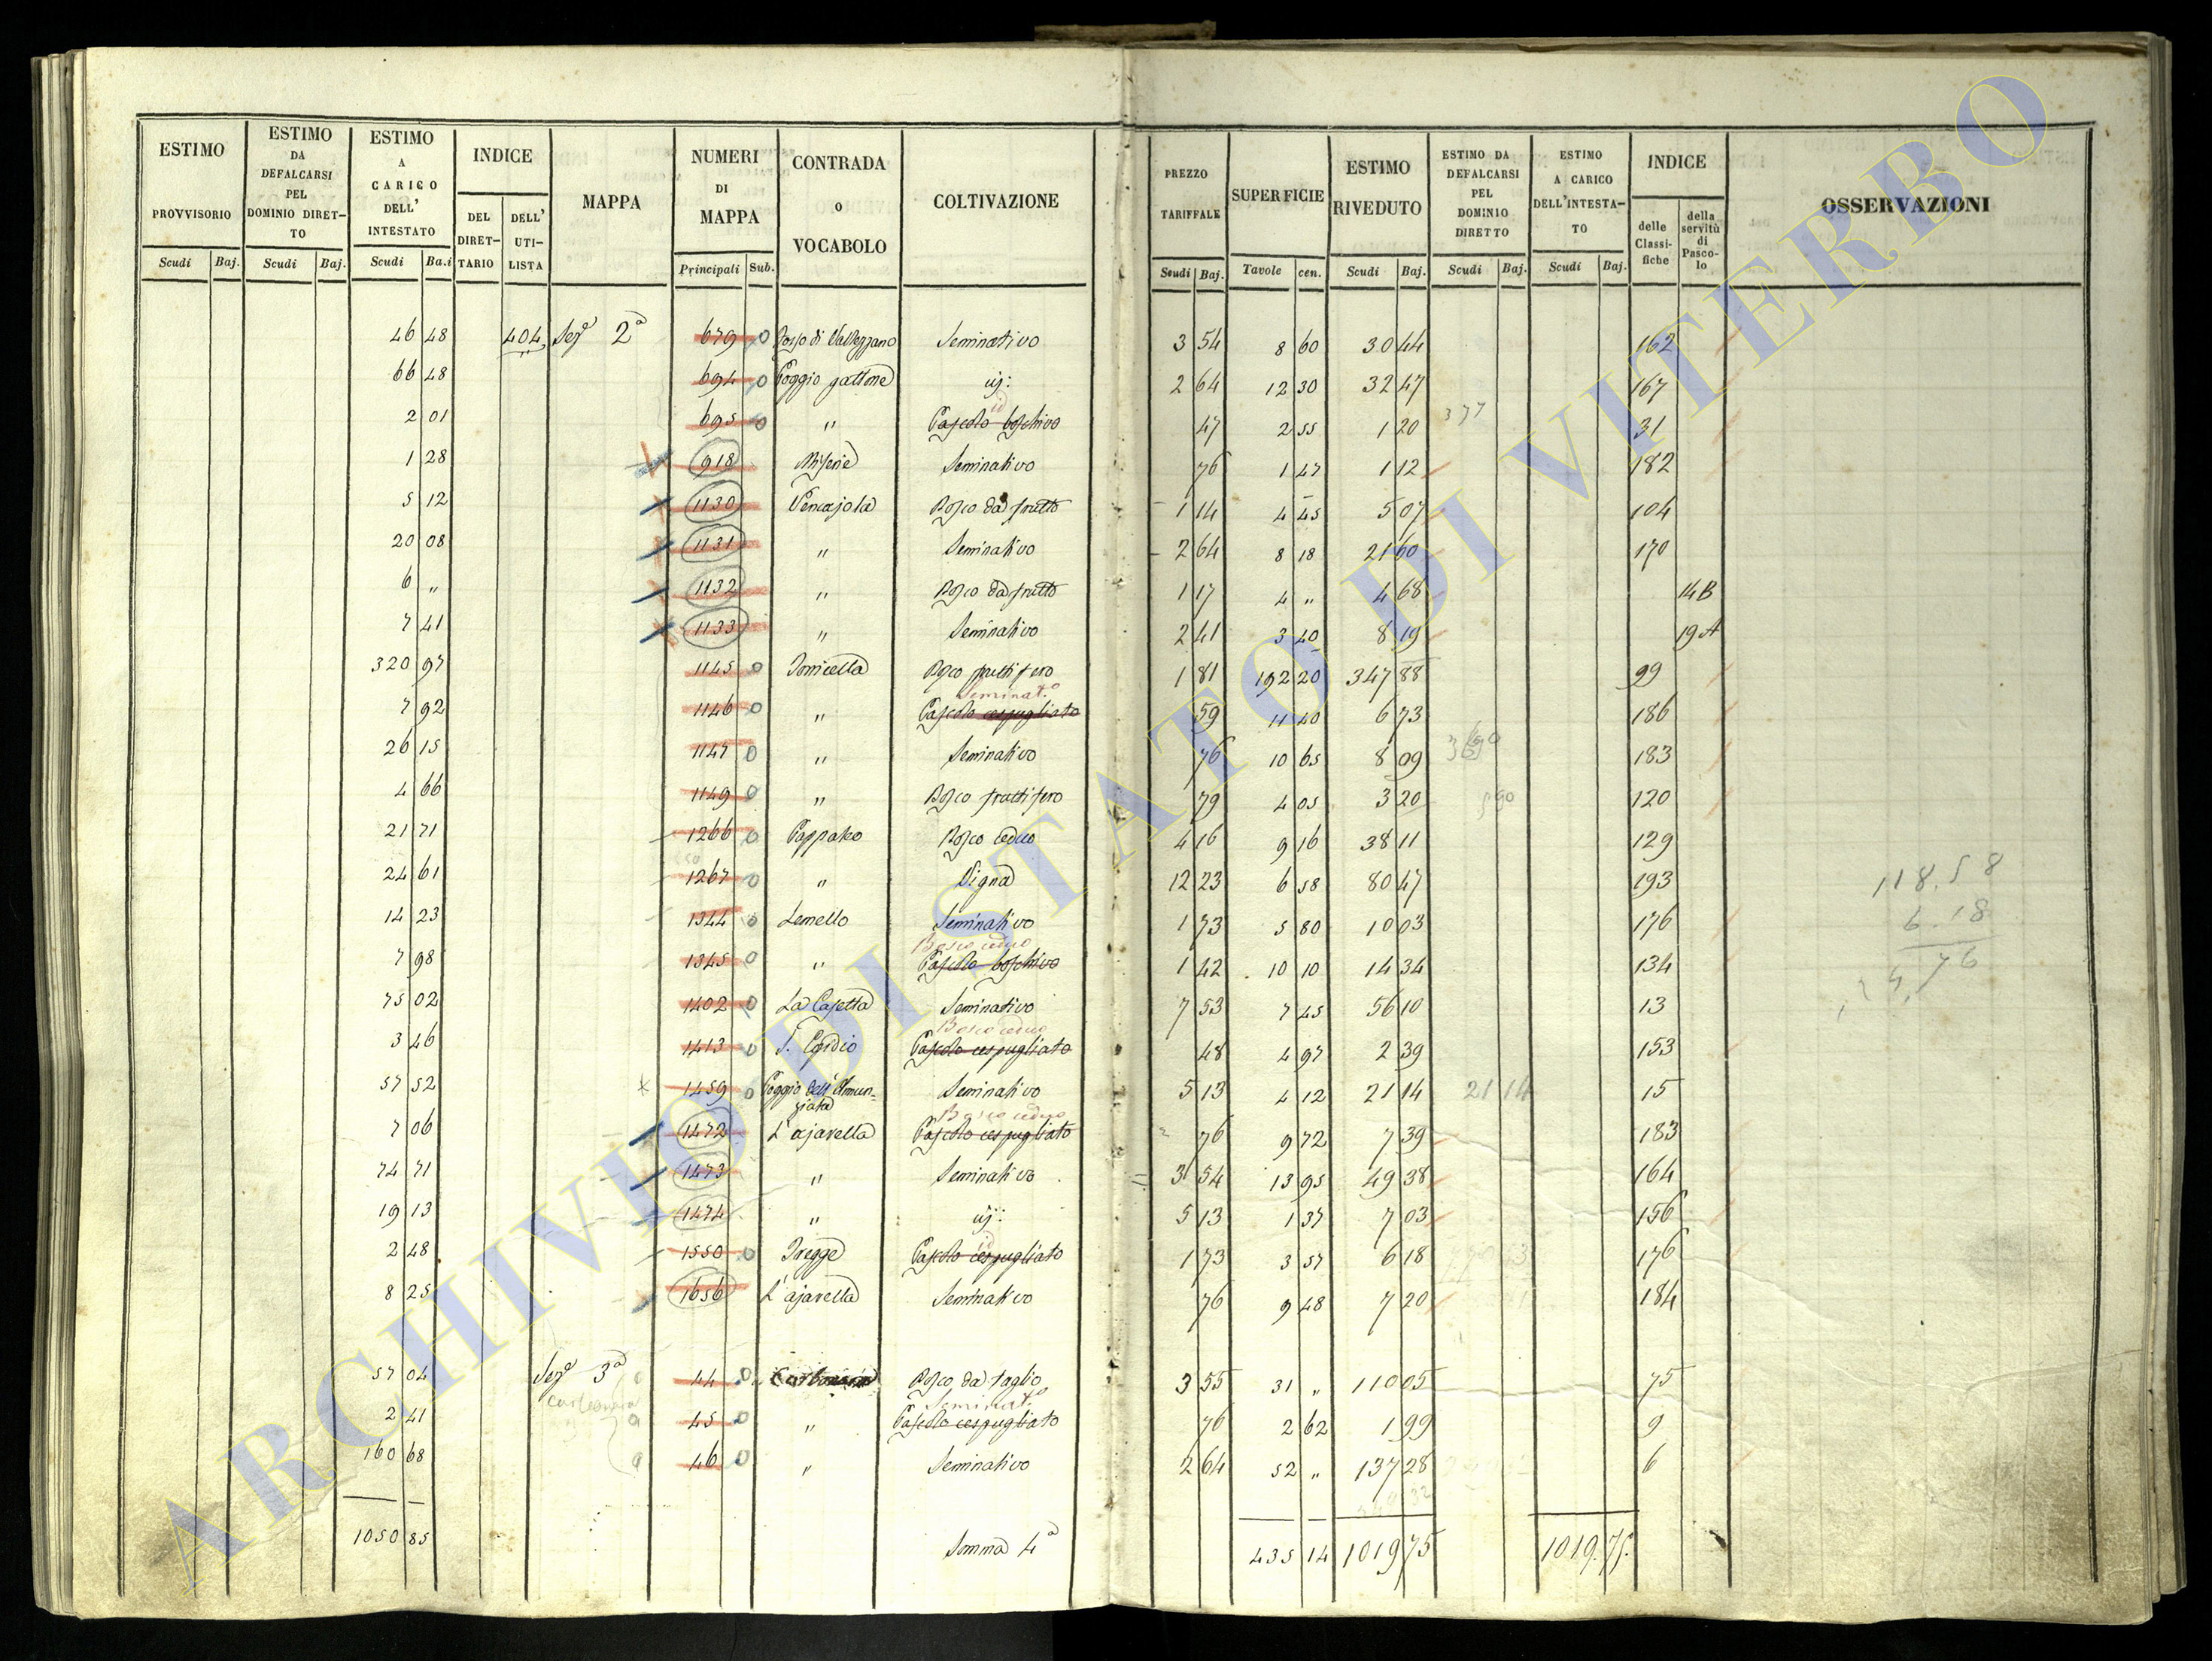 ESTIMO PROVVISORIO Scudi Baj.
ESTIMO DA DEFALCARSI PEL DOMINIO DIRET- TO Scudi Baj.
ESTIMO A CARICO DELL' INTESTATO Scudi Ba.i
INDICE DEL DIRET- TARIO DELL' UTI- LISTA
MAPPA
NUMERI DI MAPPA Principali Sub.
CONTRADA O VOCABOLO
COLTIVAZIONE
PREZZO TARIFFALE Scudi Baj.
SUPERFICIE Tavole cen.
ESTIMO RIVEDUTO Scudi Baj.
ESTIMO DA DEFALCARSI PEL DOMINIO DIRETTO Scudi Baj.
ESTIMO A CARICO DELL'INTESTA- TO Scudi Baj.
INDICE delle Classi- fiche della servitù di Pasco- lo
OSSERVAZIONI
46 48 404 Sez.e 2a 679 0 Seminativo 3 54 8 60 30 44 162
66 48 694 0 Poggio gattone id: 2 64 12 30 32 47 167
2 01 695 0 " Pascolo boschivo 47 2 55 1 20 377 31
1 28 918 Miserie Seminativo 76 1 47 1 12 182
5 12 1130 Bosco da frutto 1 14 4 45 5 07 104
20 08 1131 " Seminativo 2 64 8 18 21 60 170
6 " 1132 " Bosco da frutto 1 17 4 " 4 68 14 B
7 41 1133 " Seminativo 2 41 3 40 8 19 19 A
320 97 1145 0 Torricella Bosco fruttifero 1 81 192 20 347 88 99
Seminat.o
7 92 1146 0 " Pascolo cespugliato 59 11 40 6 73 186
26 15 1147 0 " Seminativo 76 10 65 8 09 183
4 66 1149 0 " Bosco fruttifero 79 4 05 3 20 120
21 71 1266 0 Pappaleo Bosco ceduo 4 16 9 16 38 11 129
24 61 1267 0 " Vigna 12 23 6 58 80 47 193
118.58
14 23 1344 0 Lemello Seminativo 1 73 5 80 10 03 176
6.18
Bosco ceduo
7 98 1345 0 " Pascolo boschivo 1 42 10 10 14 34 134
75 02 1402 0 La Casetta Seminativo 7 53 7 45 56 10 13
Bosco ceduo
3 46 1413 0 S. Egidio Pascolo cespugliato 48 4 97 2 39 153
57 52 1459 0 Poggio dell'Annun- ziata Seminativo 5 13 4 12 21 14 21 14 15
Bosco ceduo
7 06 1472 L'ajaretta Pascolo cespugliato 76 9 72 7 39 183
74 71 1473 " Seminativo 3 54 13 95 49 38 164
19 13 1474 " id: 5 13 1 37 7 03 156
2 48 1550 0 Tregge Pascolo cespugliato 1 73 3 57 6 18 176
8 25 1656 L'ajaretta Seminativo 76 9 48 7 20 184
57 04 Sez.e 3a 44 0 Bosco da taglio 3 55 31 " 110 05 75
Seminat.o
2 41 45 0 " Pascolo cespugliato 76 2 62 1 99 9
160 68 46 0 " Seminativo 2 64 52 " 137 28 6
1050 85 Somma 4a 435 14 1019 75 1019.75.
ARCHIVIO DI STATO DI VITERBO